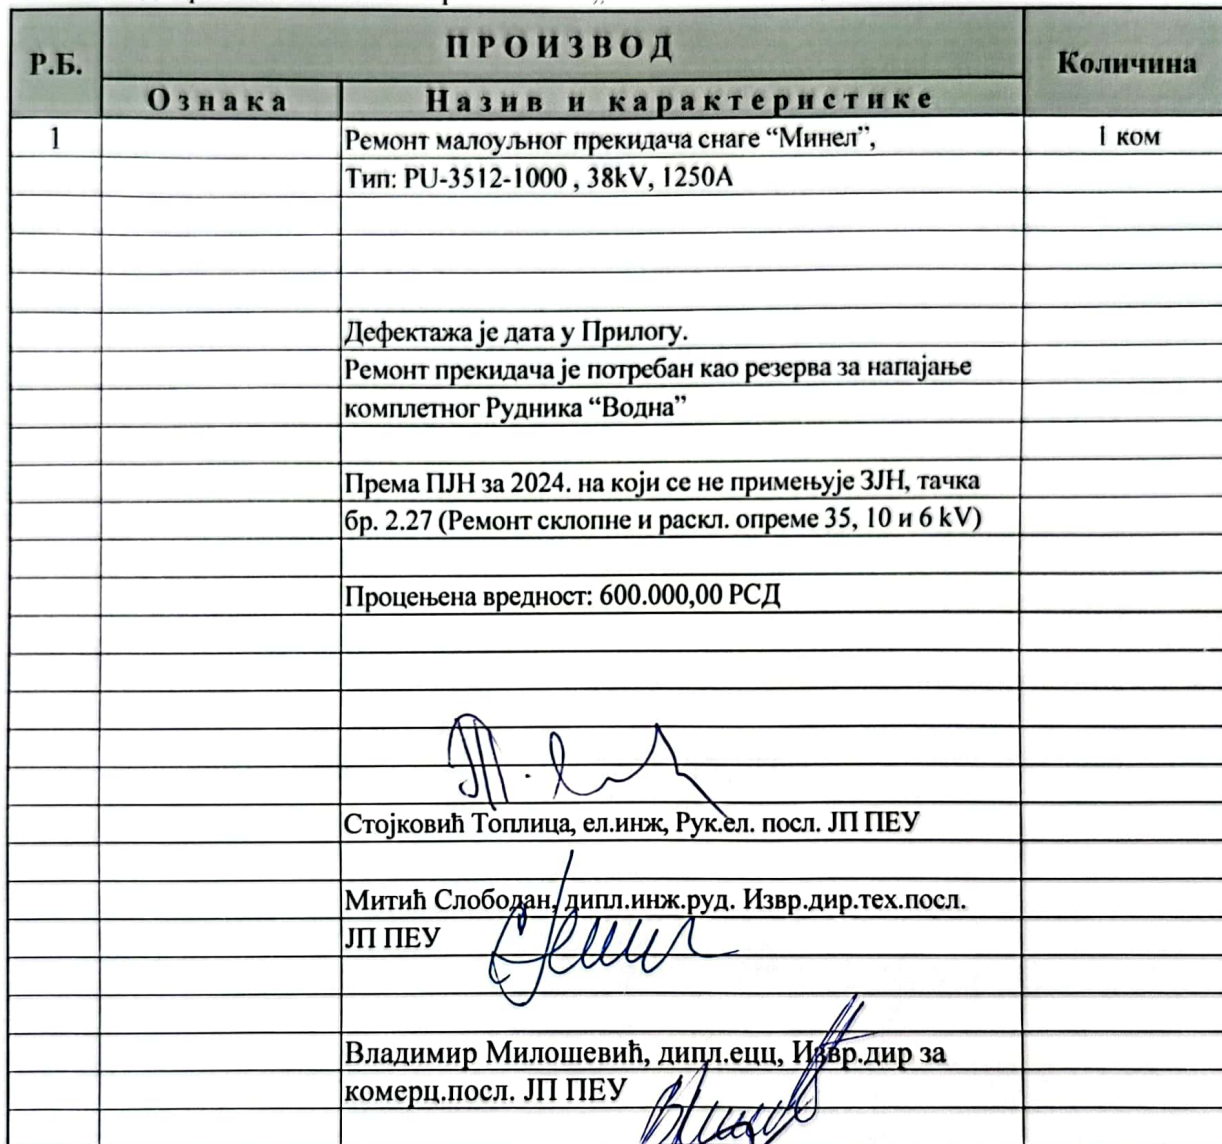 ПРОИЗВОД
Р.Б.
Количина
Ознака
Назив и карактеристике
1
Ремонт малоуљног прекидача снаге “Минел”,
1 ком
Тип: PU-3512-1000 , 38kV, 1250A
Дефектажа је дата у Прилогу.
Ремонт прекидача је потребан као резерва за напајање
комплетног Рудника “Водна”
Према ПЈН за 2024. на који се не примењује ЗЈН, тачка
бр. 2.27 (Ремонт склопне и раскл. опреме 35, 10 и 6 kV)
Процењена вредност: 600.000,00 РСД
Стојковић Топлица, ел.инж, Рук.ел. посл. ЈП ПЕУ
Митић Слободан, дипл.инж.руд. Извр.дир.тех.посл.
ЈП ПЕУ
Владимир Милошевић, дипл.ецц, Извр.дир за
комерц.посл. ЈП ПЕУ